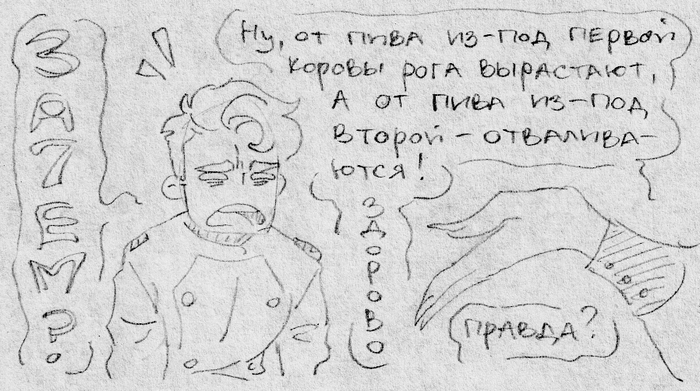 Ну, от пива из-под первой
коровы рога вырастают,
А от пива из-под
второй - отвалива-
ются!
Здорово
правда?
ЗАЧЕМ?